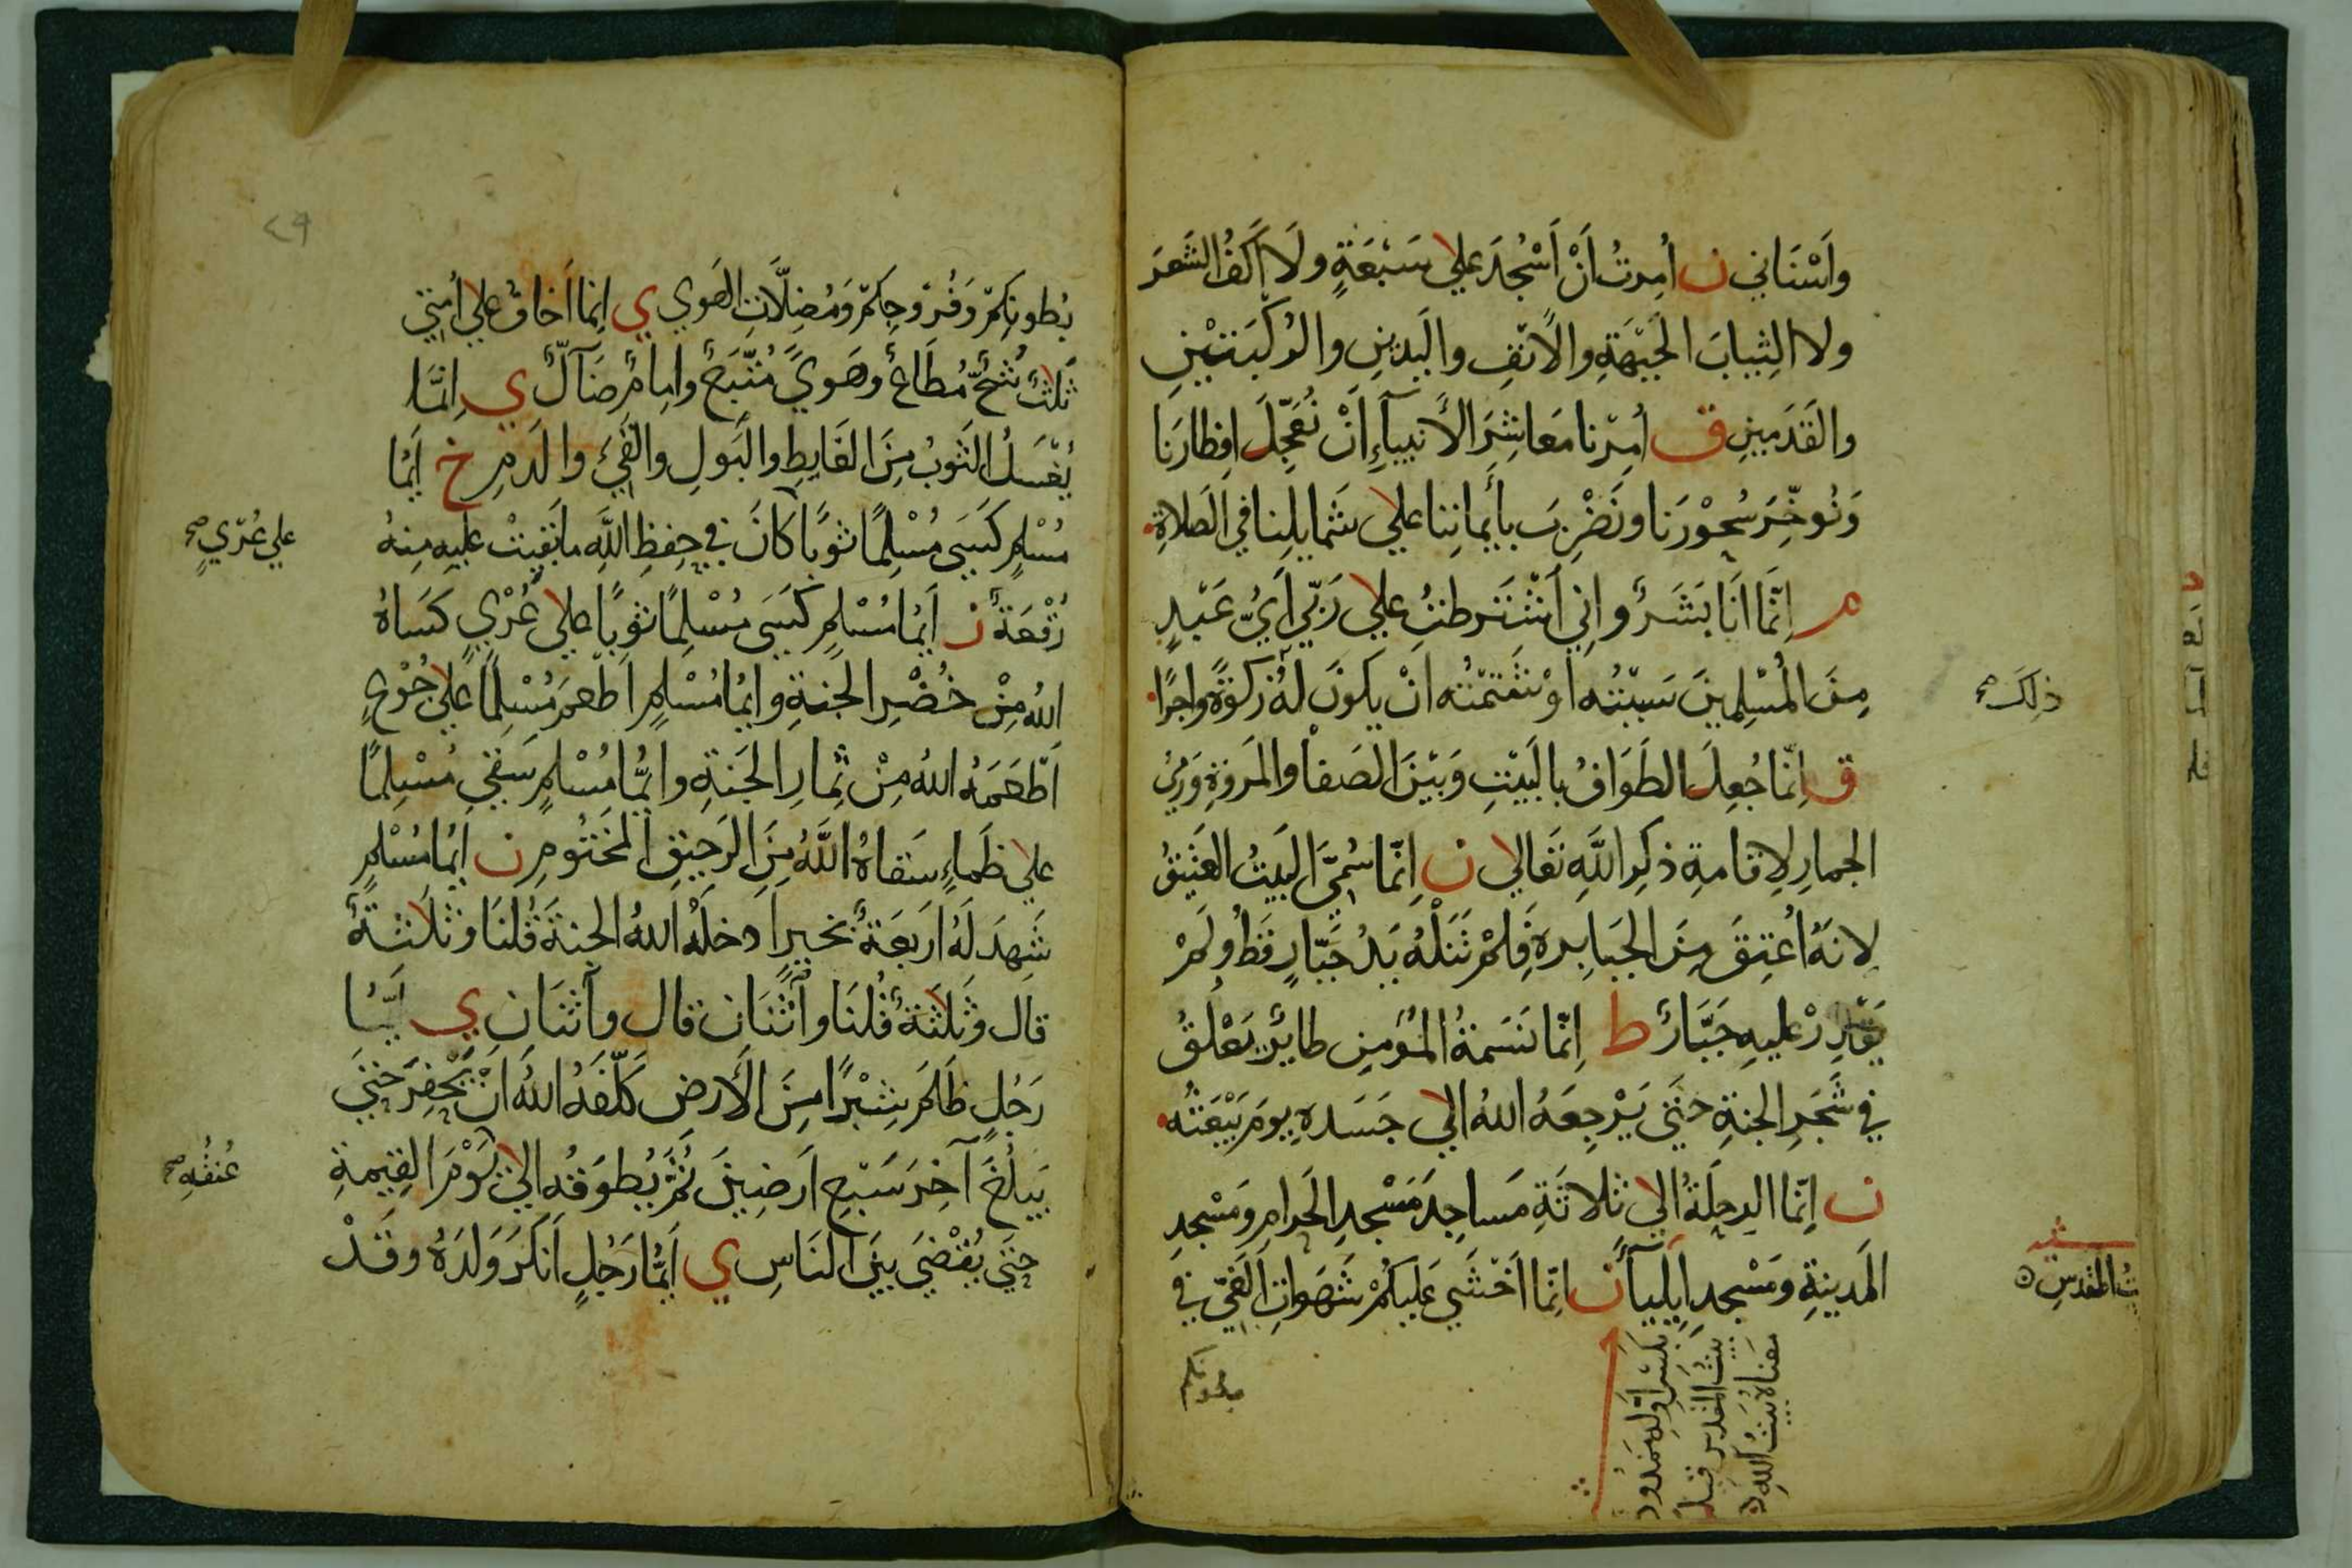 وَأَسْنَانِي ن أُمِرتُ أَنْ أَسْجُدَ علي سَبْعَةٍ ولَا أَكُفُّ الشَعَرَ
ولا الثِيابَ الجَبْهَةِ والأَنْفِ واليَدَيْنِ والرُكْبَتَيْنِ
والقَدَمَيْنِ ق أُمِرْنا مَعَاشِرَ الأَنبياءِ أَنْ نُعَجِّلَ افِطارَنا
وَنُوخِّرَ سُحوْرَنا ونَضْرِبَ بأَيمانِنا علي شَمايلِنا في الصَلاةِ
م إِنَّما اَنَا بَشَرٌ واِنِي اَشْتَرطتُ علي رَبِّي اَيُّ عَبْدٍ
مِنَ المُسْلِمينَ سَبَبْتُه اَوْ شَتَمْتُه انْ يكونَ لَهُ زكوةً واجرًا
ذلِكَ صح
ق اِنَّما جُعِلَ الطَوَافُ بالبَيْتِ وَبَيْنَ الصَفا والمَروَةِ وَرَمْيُ
الجمارِ لِاقامةِ ذكرِ اللَّهِ تَعَالي ن اِنَّما سُمِّيَ البَيتُ العَتِيقُ
لانهُ اُعتِقَ مِنَ الجَبابِرةِ فلمْ تَنَلْهُ يَدُ جَبّارٍ قَطُ ولَمْ
يَقْدِرْ عليهِ جَبَّارٌ ط اِنّما نَسَمةُ المُؤمنِ طايرٌ يَعْلُقُ
في شَجَرِ الجنةِ حَتَّي يَرْجِعَهُ اللهُ الي جَسَدهِ يومَ يَبْعَثُه
ن اِنّما الرِحلَةُ الي ثلاثَةِ مَساجِدَ مَسْجدِ الحَرامِ ومَسْجدِ
المَدينةِ ومَسْجدِ اِيلِيآءَ ن اِنّما اَخْشَي عَلَيكمْ شَهَواتِ الغَيّ في
المقدسِ
بكَسْرِ اَوّلِه مَمدُود
بَيتُ المقدسِ قيل
معناهُ بَيتُ اللهِ
بُطونِكمْ وَفُروجِكمْ وَمُضِلَّاتِ الهَوي ي اِنّما اَخافُ علي اُمتِي
ثَلٰثٌ شُحٌّ مُطَاعٌ وهَويً مُتَّبَعٌ وامامٌ ضَآلٌّ ي اِنّما
يُغْسَلُ الثَوبُ مِنَ الغَايِطِ والبَولِ والقَيْءِ والدَمِ خ اَيُّما
مُسْلِمٍ كَسَي مُسْلِمًا ثوبًا كَانَ في حِفظِ اللَّهِ مابَقِيَتْ عليهِ مِنهُ
علي عُرْيٍ صح
رُقْعَةٌ ن اَيُّما مُسْلمٍ كَسَي مُسْلِمًا ثوبًا علي عُرْيٍ كَسَاهُ
اللهُ مِنْ خُضْرِ الجَنةِ وايُّما مُسْلِمٍ اَطْعمَ مُسْلِمًا علي جُوْعٍ
اَطْعَمَهُ اللهُ مِنْ ثِمارِ الجَنةِ واَيُّما مُسْلمٍ سَقي مُسْلِمًا
علي ظَماءٍ سَقاهُ اللَّهُ مِنَ الرَحيقِ المَخْتُومِ ن اَيُّما مُسْلمٍ
شَهِدَ لَهُ اَربَعَةٌ بخيرٍ اَدخلَهُ اللهُ الجنةَ قُلنَا وثلاثةٌ
قال وثَلٰثَةٌ قُلنَا وآثْنَان قال وآثنَانِ ي اَيُّما
رَجُلٍ ظَلَمَ شِبْرًا مِنَ الأَرضِ كَلّفَهُ اللهُ اَنْ يَحْفِرَ حتي
يَبلُغَ آخِرَ سَبْعِ اَرَضِينَ ثُمَّ يُطوَقُه الي يَوْمَ القِيٰمةِ
عُنقُهِ صح
حتي يُقْضيَ بَينَ النَاسِ ي اَيُّما رَجُلٍ اَنكَرَ وَلَدَهُ وقَدْ